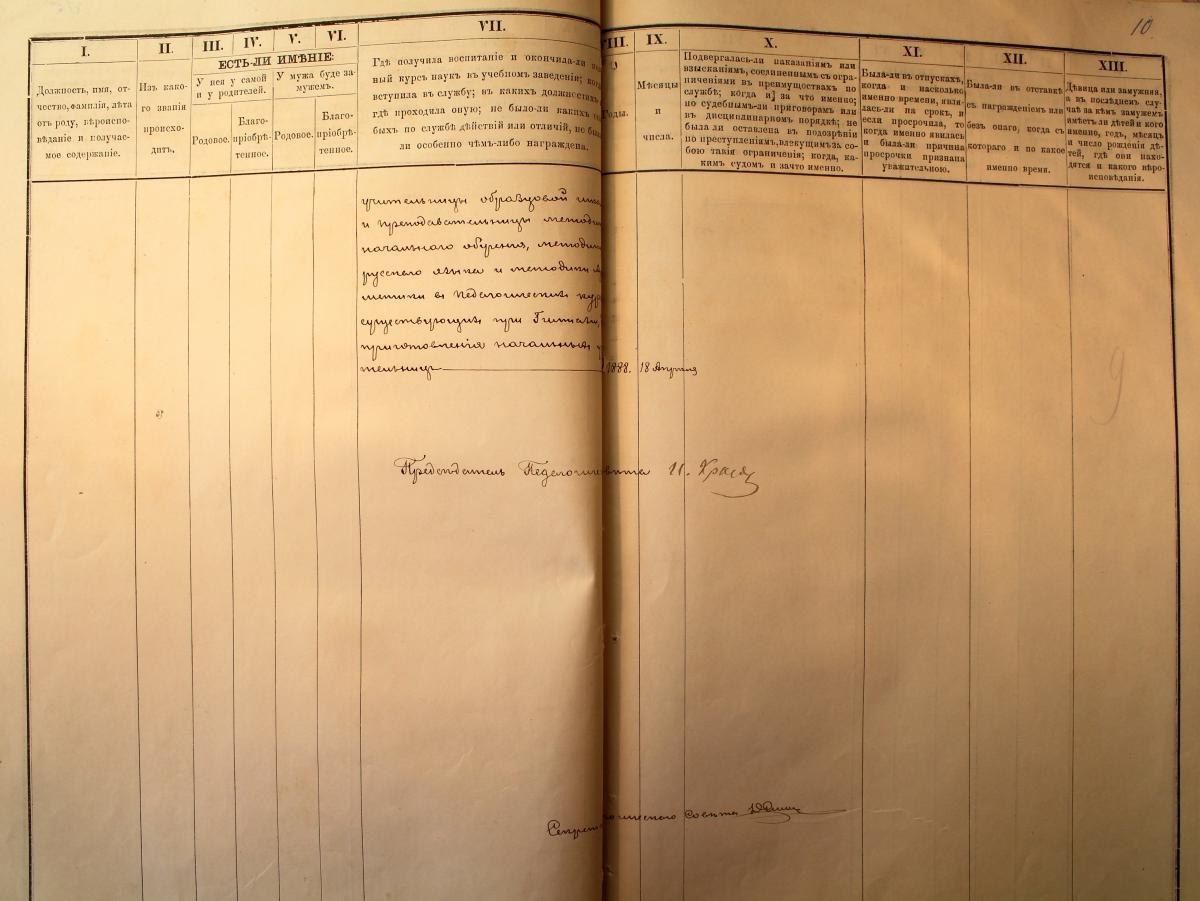 10
I.
II.
III.
IV.
V.
VI.
VII.
VIII.
IX.
X.
XI.
XII.
XIII.
Должность, имя, от-
чество, фамилія, лѣта
отъ роду, вѣроиспо-
вѣданіе и получае-
мое содержаніе.
Изъ како-
го званія
происхо-
дитъ.
ЕСТЬ-ЛИ ИМѢНІЕ:
У нея у самой
и у родителей.
У мужа буде за-
мужемъ.
Родовое.
Благо-
пріобрѣ-
тенное.
Родовое.
Благо-
пріобрѣ-
тенное.
Гдѣ получила воспитаніе и окончила-ли
ный курсъ наукъ въ учебномъ заведеніи;
вступила въ службу; въ какихъ должностяхъ
гдѣ проходила оную; не было-ли какихъ
быхъ по службѣ дѣйствій или отличій, не
ли особенно чѣмъ-либо награждена.
Годы.
Мѣсяцы
и
числа.
Подвергалась-ли наказаніямъ или
взысканіямъ, соединеннымъ съ огра-
ниченіями въ преимуществахъ по
службѣ; когда и за что именно;
по судебнымъ-ли приговорамъ или
въ дисциплинарномъ порядкѣ; не
была ли оставлена въ подозрѣніи
по преступленіямъ, влекущимъ за со-
бою такія ограниченія; когда, ка-
кимъ судомъ и за что именно.
Была-ли въ отпускахъ,
когда и насколько
именно времени, явля-
лась-ли на срокъ, и
если просрочила, то
когда именно явилась
и была-ли причина
просрочки признана
уважительною.
Была-ли въ отставкѣ
съ награжденіемъ или
безъ онаго, когда съ
котораго и по какое
именно время.
Дѣвица или замужняя,
а въ послѣднемъ слу-
чаѣ за кѣмъ замужемъ
имѣетъ ли дѣтей и кого
именно, годъ, мѣсяцъ
и число рожденія дѣ-
тей, гдѣ они нахо-
дятся и какого вѣро-
исповѣданія.
учительницы образцовой
и преподавательницы
начальнаго обученія,
русскаго языка и методики
метики въ Педагогическихъ
существующихъ при Гимназіи,
приготовленія начальныхъ
тельницъ 1888. 18 Апрѣля
9
Предсѣдатель И.
Совѣта